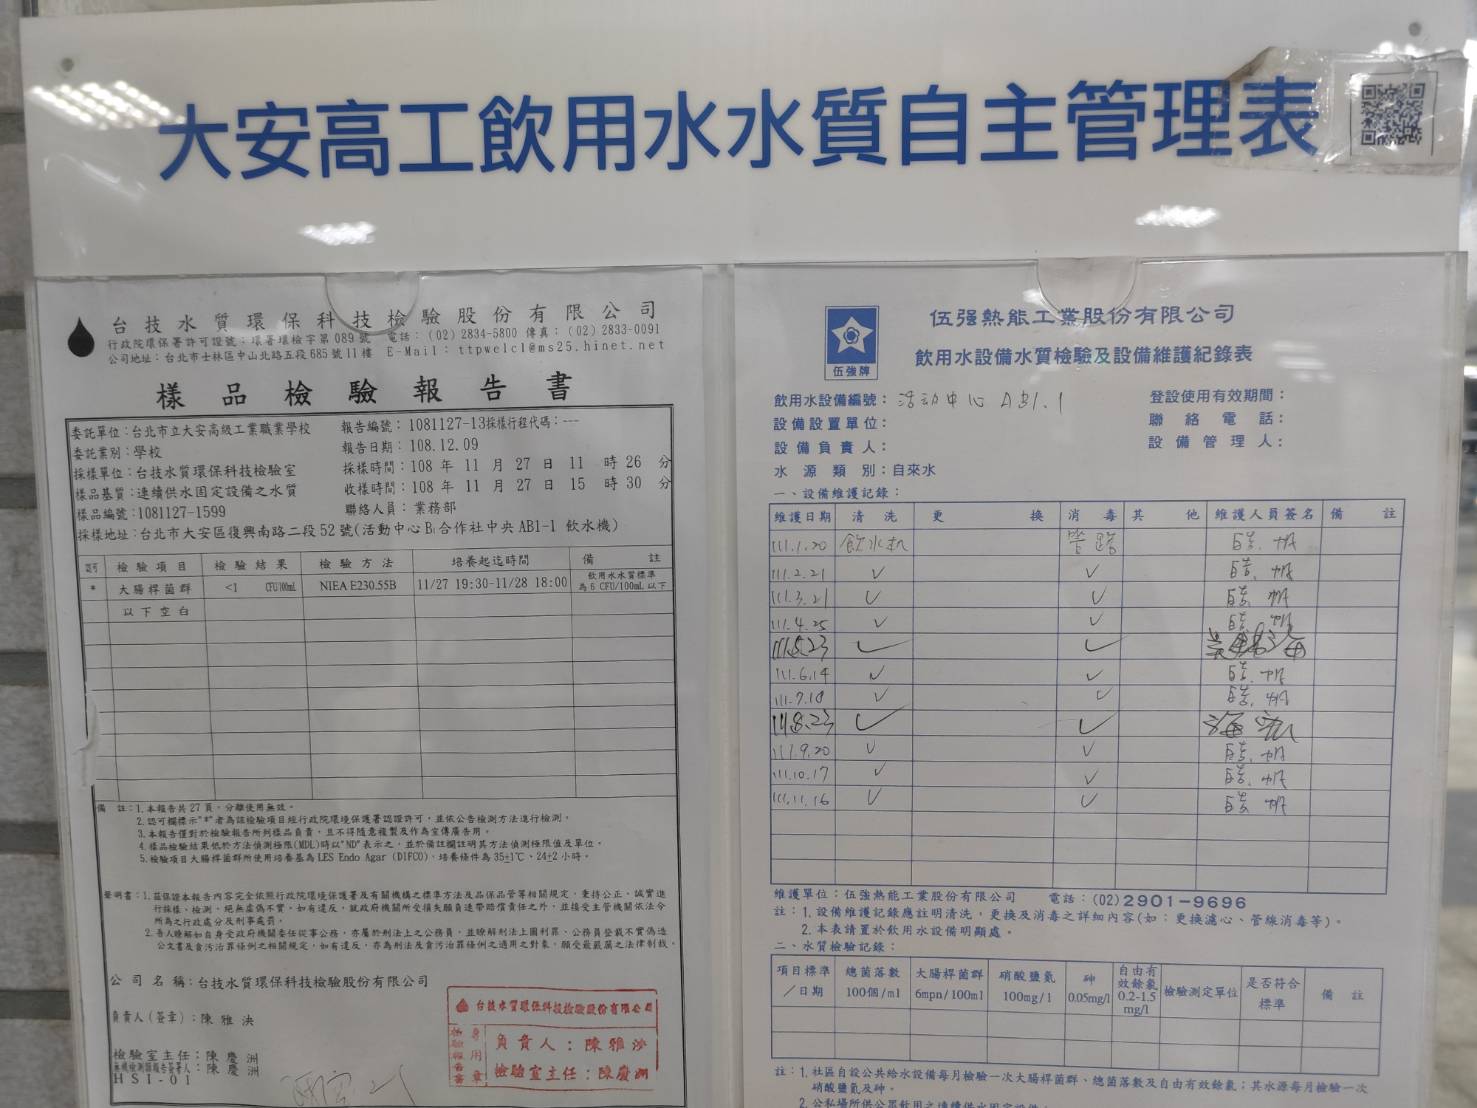 大安高工飲用水水質自主管理表
台技水質環保科技檢驗股份有限公司
行政院環保署許可證號：環署環檢字第089號 電話：(02) 2834-5800 傳真：(02) 2833-0091
公司地址：台北市士林區中山北路五段685號11樓 E-Mail：ttpwelcl@ms25.hinet.net
樣品檢驗報告書
委託單位：台北市立大安高級工業職業學校 報告編號：1081127-13採樣行程代碼：---
委託業別：學校 報告日期：108.12.09
採樣單位：台技水質環保科技檢驗室 採樣時間：108 年 11 月 27 日 11 時 26 分
樣品基質：連續供水固定設備之水質 收樣時間：108 年 11 月 27 日 15 時 30 分
樣品編號：1081127-1599 聯絡人員：業務部
採樣地址：台北市大安區復興南路二段52號(活動中心B1合作社中央AB1-1 飲水機)
認可 檢驗項目 檢驗結果 檢驗方法 培養起迄時間 備註
* 大腸桿菌群 <1 CFU/100mL NIEA E230.55B 11/27 19:30-11/28 18:00 飲用水水質標準為 6 CFU/100mL 以下
以下空白
備 註：1.本報告共27頁，分離使用無效。
2.認可欄標示"*"者為該檢驗項目經行政院環境保護署認證許可，並依公告檢測方法進行檢測。
3.本報告僅對於檢驗報告所列樣品負責，且不得隨意複製及作為宣傳廣告用。
4.樣品檢驗結果低於方法偵測極限(MDL)時以"ND"表示之，並於備註欄註明其方法偵測極限值及單位。
5.檢驗項目大腸桿菌群所使用培養基為LES Endo Agar (DIFCO)，培養條件為35±1℃、24±2小時。
聲明書：1.茲保證本報告內容完全依照行政院環境保護署及有關機構之標準方法及品保品管等相關規定，秉持公正、誠實進
行採樣、檢測，絕無虛偽不實。如有違反，就政府機關所受損失願負連帶賠償責任之外，並接受主管機關依法令
所為之行政處分及刑事處罰。
2.吾人瞭解如自身受政府機關委任從事公務，亦屬於刑法上之公務員，並瞭解刑法上圖利罪、公務員登載不實偽造
公文書及貪污治罪條例之相關規定，如有違反，亦為刑法及貪污治罪條例之適用之對象，願受最嚴厲之法律制裁。
公司名稱：台技水質環保科技檢驗股份有限公司
負責人(簽章)：陳雅泱
檢驗室主任：陳慶洲
無機檢測類報告簽署人：陳慶洲
HSI-01
台技水質環保科技檢驗股份有限公司
檢驗報告 專用章
負責人：陳雅泱
檢驗室主任：陳慶洲
伍強牌
伍强熱能工業股份有限公司
飲用水設備水質檢驗及設備維護紀錄表
飲用水設備編號：活动中心 AB1.1 登設使用有效期間：
設備設置單位： 聯絡電話：
設備負責人： 設備管理人：
水源類別：自來水
一、設備維護記錄：
維護日期 清洗 更換 消毒 其他 維護人員簽名 備註
111.1.20 飲水机 管路
111.2.21 ✓ ✓
111.3.21 ✓ ✓
111.4.25 ✓ ✓
111.5.23 ✓ ✓
111.6.14 ✓ ✓
111.7.18 ✓ ✓
111.8.23 ✓ ✓
111.9.20 ✓ ✓
111.10.17 ✓ ✓
111.11.16 ✓ ✓
維護單位：伍強熱能工業股份有限公司 電話：(02)2901-9696
註：1.設備維護記錄應註明清洗，更換及消毒之詳細內容(如：更換濾心、管線消毒等)。
2.本表請置於飲用水設備明顯處。
二、水質檢驗記錄：
項目標準／日期 總菌落數 100個/ml 大腸桿菌群 6mpn/100ml 硝酸鹽氮 100mg/l 砷 0.05mg/l 自由有效餘氯 0.2-1.5 mg/l 檢驗測定單位 是否符合標準 備註
註：1.社區自設公共給水設備每月檢驗一次大腸桿菌群、總菌落數及自由有效餘氯；其水源每月檢驗一次
硝酸鹽氮及砷。
2.公私場所供公眾飲用之連續供水固定設備：